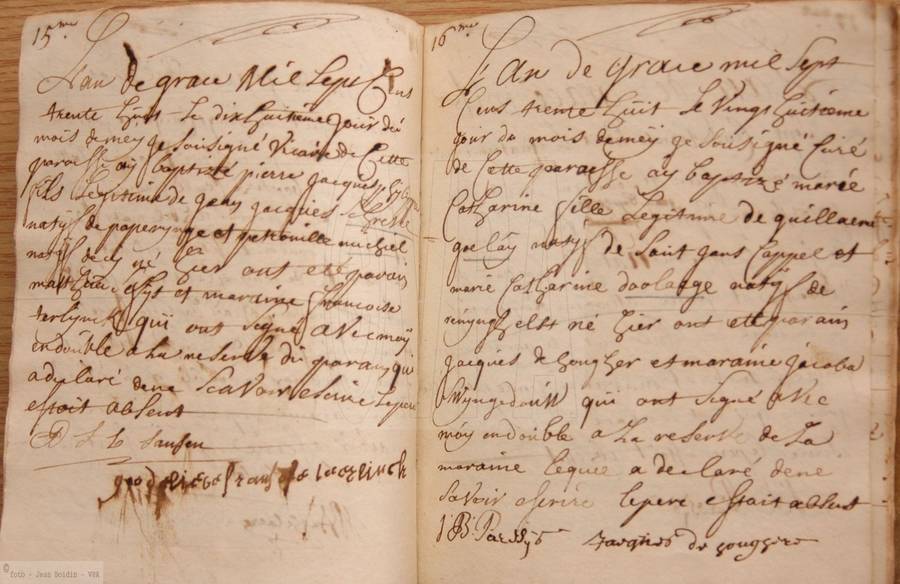 15me
L'an de grace Mil Sept Cens
trente huit le dix huitieme jour du
mois de mey je sousigné vicaire de cette
paroisse ay baptizé pierre jacques
fils legitime de jean jacques
natif de poperynge et petronille michiel
né hier ont eté parain
et maraine francoise
terlynck qui ont signé avec moy
en double a la reserve du parain qui
a declaré dene scavoir escrire le pere
estoit absent
Jansen
16me
L'an de grace mil sept
Cens trente huit le vingt huitieme
jour du mois de mey je sousigné Curé
de cette paroisse ay baptizé marie
Catharine fille legitime de guillaeme
natif de Saint jans Cappel et
marie Catharine doolaege natif de
renynghelst né hier ont eté parain
jacques de hougher et maraine jacoba
Wyngedouw qui ont signé avec
moy en double a la reserve de la
maraine lequel a declaré dene
savoir escrire le pere estait absent
jacques de
© foto - Jean Boidin - VVK